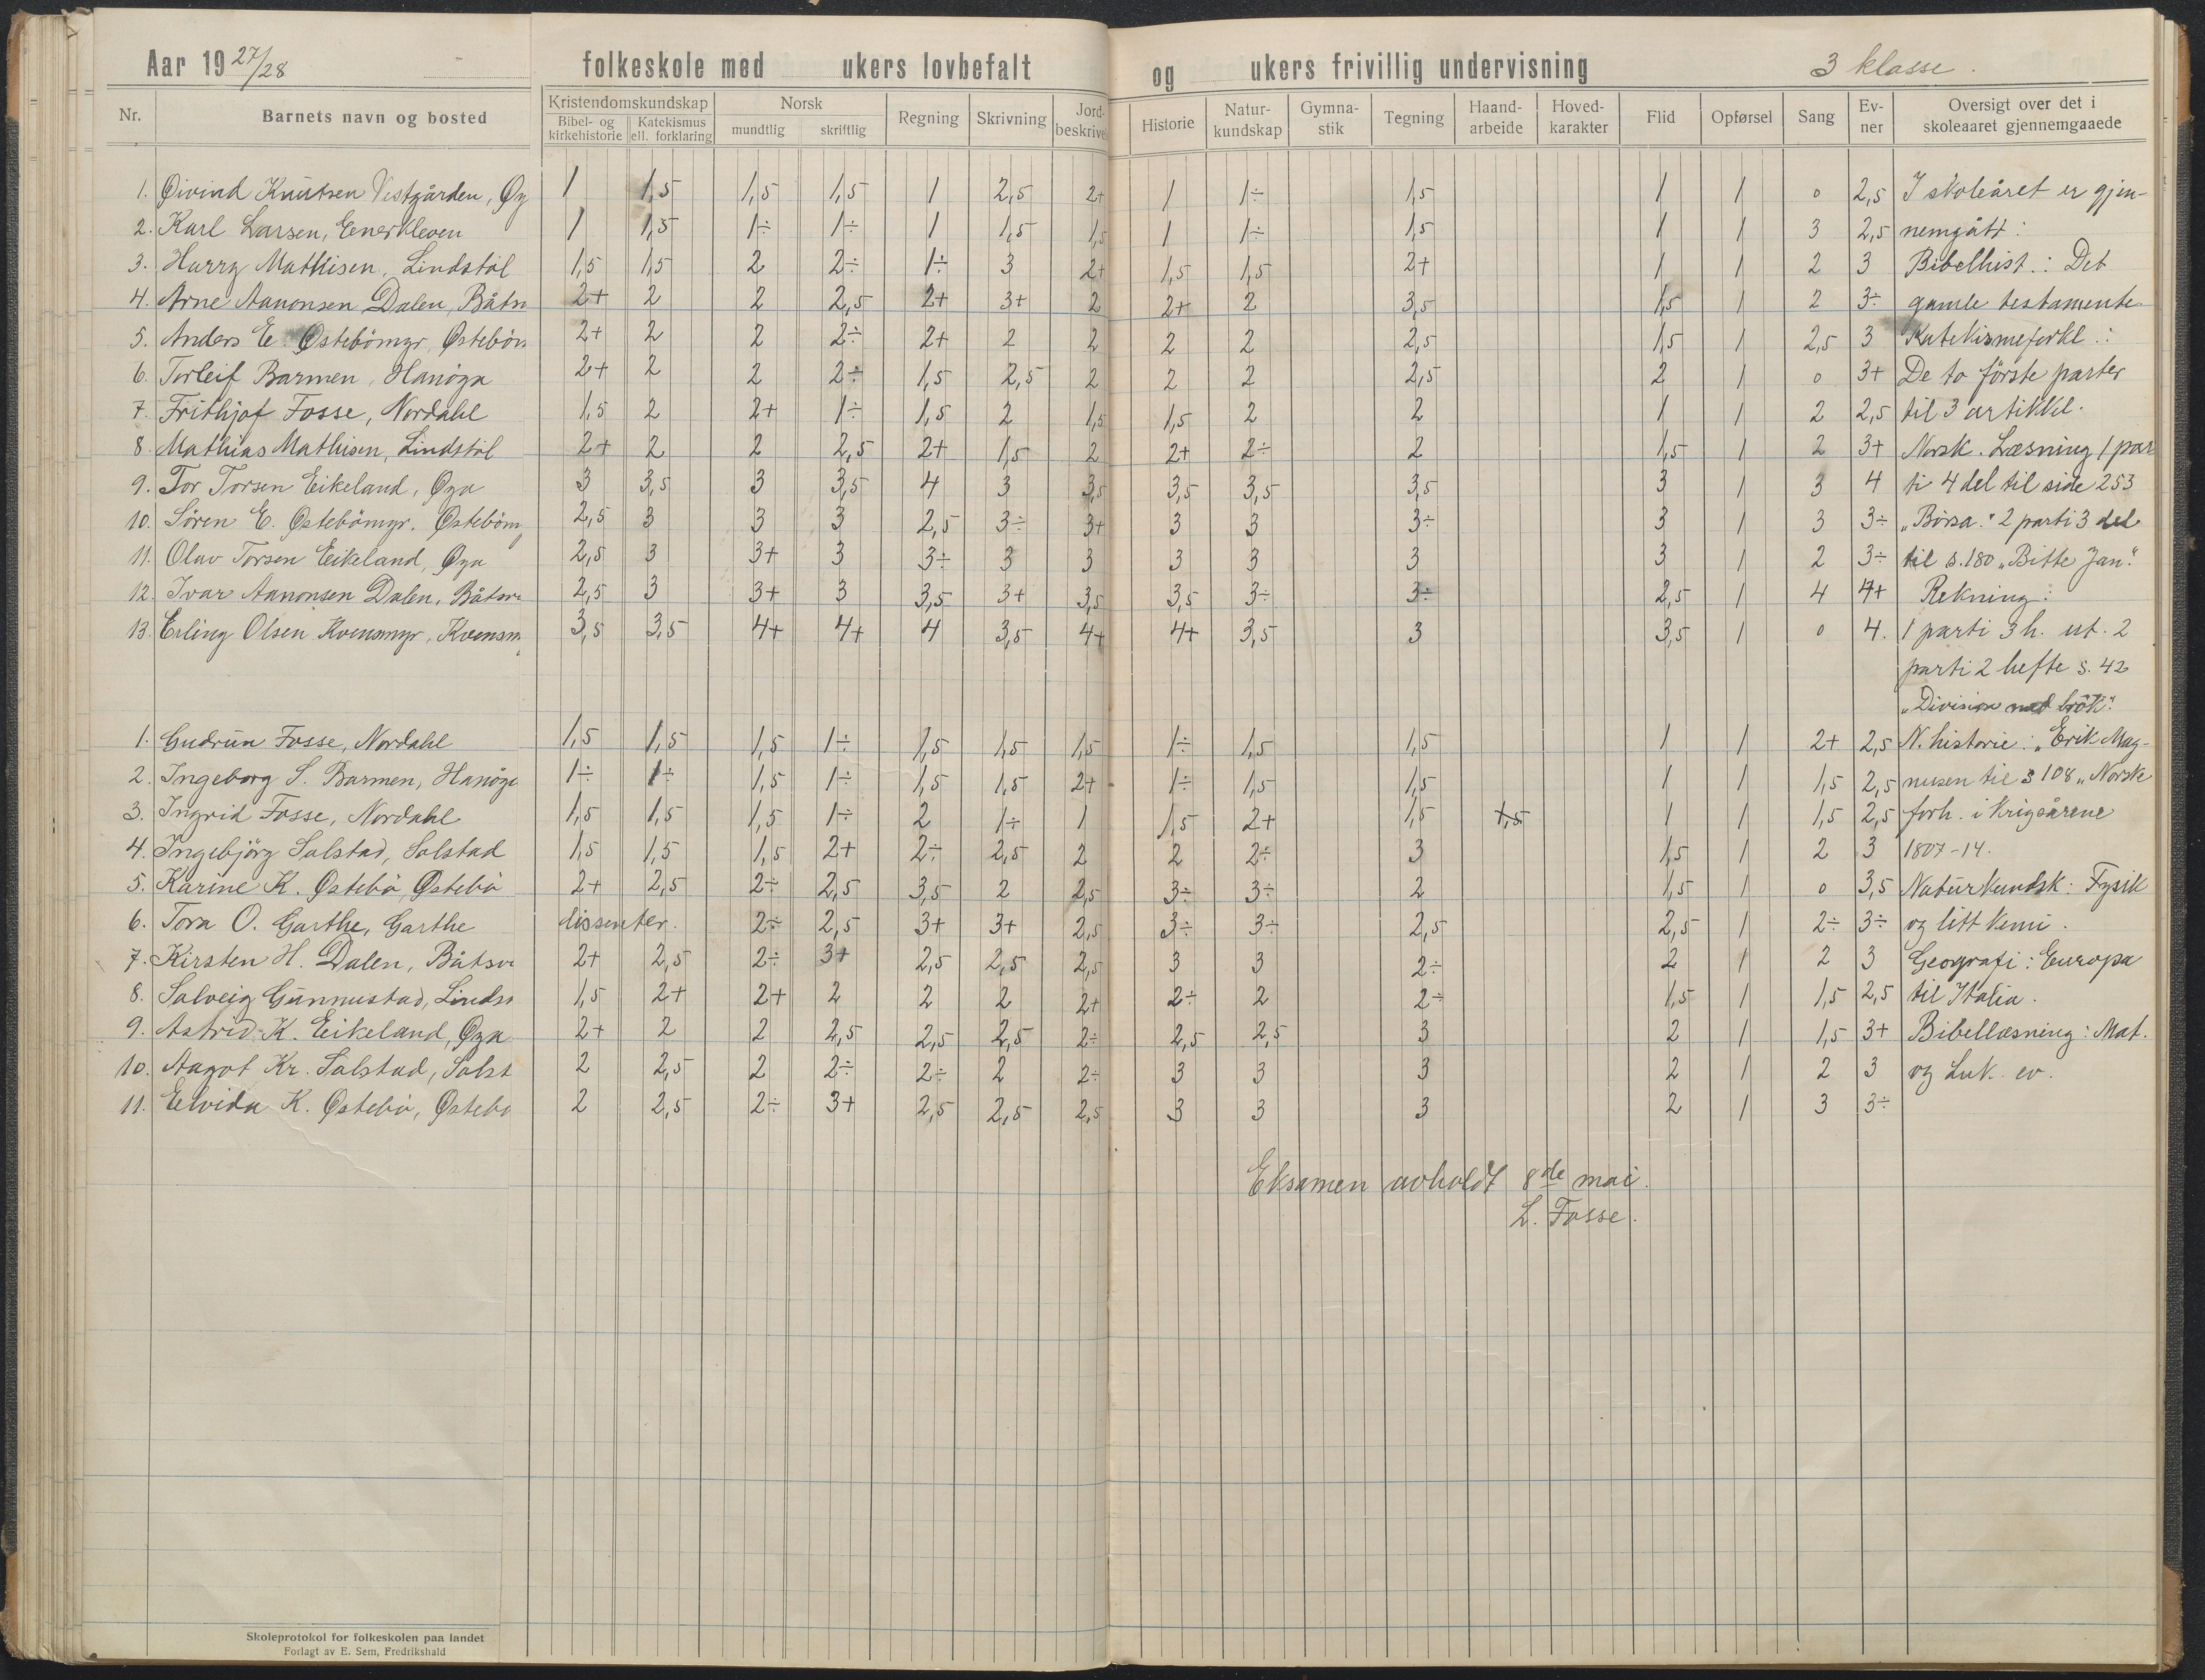 Aar 19 27/28 folkeskole med ukers lovbefalt og ukers frivillig undervisning 3 klasse.
Nr. Barnets navn og bosted Kristendomskundskap Bibel- og kirkehistorie Katekismus ell. forklaring Norsk mundtlig skriftlig Regning Skrivning Jord-beskrivel Historie Natur-kundskap Gymna-stik Tegning Haand-arbeide Hoved-karakter Flid Opførsel Sang Ev-ner Oversigt over det i skoleaaret gjennemgaaede
1. Øivind Knutsen Vestgården, Øy 1 1,5 1,5 1,5 1 2,5 2+ 1 1÷ 1,5 1 1 0 2,5 I skoleåret er gjen-
2. Karl Larsen, Eenerkleven 1 1,5 1÷ 1÷ 1 1,5 1,5 1 1÷ 1,5 1 1 3 2,5 nemgått:
3. Harry Mathisen, Lindstøl 1,5 1,5 2 2÷ 1÷ 3 2+ 1,5 1,5 2+ 1 1 2 3 Bibelhist.: Det
4. Arne Aanonsen Dalen, Båtsv 2+ 2 2 2,5 2+ 3+ 2 2+ 2 3,5 1,5 1 2 3÷ gamle testamente
5. Anders E. Østebömyr, Østeböm 2+ 2 2 2÷ 2+ 2 2 2 2 2,5 1,5 1 2,5 3 Katekismeforkl.:
6. Torleif Barmen, Hanöya 2+ 2 2 2÷ 1,5 2,5 2 2 2 2,5 2 1 0 3+ De to förste parter
7. Frithjof Fosse, Nordahl 1,5 2 2+ 1÷ 1,5 2 1,5 1,5 2 2 1 1 2 2,5 til 3 artikkel.
8. Mathias Mathisen, Lindstöl 2+ 2 2 2,5 2+ 1,5 2 2+ 2÷ 2 1,5 1 2 3+ Norsk. Læsning 1 par
9. Tor Torsen Eikeland, Øya 3 3,5 3 3,5 4 3 3,5 3,5 3,5 3,5 3 1 3 4 ti 4 del til side 253
10. Sören E. Östebömyr. Østeböm 2,5 3 3 3 2,5 3÷ 3+ 3 3 3÷ 3 1 3 3÷ „Börsa." 2 parti 3 del
11. Olav Torsen Eikeland, Øya 2,5 3 3+ 3 3÷ 3 3 3 3 3 3 1 2 3÷ til s. 180 „Bitte Jan".
12. Ivar Aanonsen Dalen, Båtsv 2,5 3 3+ 3 3,5 3+ 3,5 3,5 3÷ 3÷ 2,5 1 4 4+ Rekning:
13. Erling Olsen Kvensmyr, Kvensm 3,5 3,5 4+ 4+ 4 3,5 4+ 4+ 3,5 3 3,5 1 0 4. 1 parti 3 h. ut. 2
parti 2 hefte s. 42
„Division med brök".
1. Gudrun Fosse, Nordahl 1,5 1,5 1,5 1÷ 1,5 1,5 1,5 1÷ 1,5 1,5 1 1 2+ 2,5 N. historie: „Erik Mag-
2. Ingeborg S. Barmen, Hanöya 1÷ 1÷ 1,5 1÷ 1,5 1,5 2+ 1÷ 1,5 1,5 1 1 1,5 2,5 nusen til s 108 „Norske
3. Ingrid Fosse, Nordahl 1,5 1,5 1,5 1÷ 2 1÷ 1 1,5 2+ 1,5 1,5 1 1 1,5 2,5 forh. i krigsårene
4. Ingebjörg Solstad, Solstad 1,5 1,5 1,5 2+ 2÷ 2,5 2 2 2÷ 3 1,5 1 2 3 1807-14.
5. Karine K. Østebö, Østebö 2+ 2,5 2÷ 2,5 3,5 2 2,5 3÷ 3÷ 2 1,5 1 0 3,5 Naturkundsk: Fysik
6. Tora O. Garthe, Garthe dissenter. 2÷ 2,5 3+ 3+ 2,5 3÷ 3÷ 2,5 2,5 1 2÷ 3÷ og litt kemi.
7. Kirsten H. Dalen, Båtsv 2+ 2,5 2÷ 3+ 2,5 2,5 2,5 3 3 2÷ 2 1 2 3 Geografi: Europa
8. Solveig Gunnustad, Linds 1,5 2+ 2+ 2 2 2 2+ 2÷ 2 2÷ 1,5 1 1,5 2,5 til Italia.
9. Astrid K. Eikeland, Øya 2+ 2 2 2,5 2,5 2,5 2÷ 2,5 2,5 3 2 1 1,5 3+ Bibellæsning: Mat.
10. Aagot Kr. Solstad, Solst 2 2,5 2 2÷ 2÷ 2 2÷ 3 3 3 2 1 2 3 og Luk. ev.
11. Elvida K. Østebö, Østebö 2 2,5 2÷ 3+ 2,5 2,5 2,5 3 3 3 2 1 3 3÷
Eksamen avholdt 8de mai.
L. Fosse.
Skoleprotokol for folkeskolen paa landet
Forlagt av E. Sem, Fredrikshald